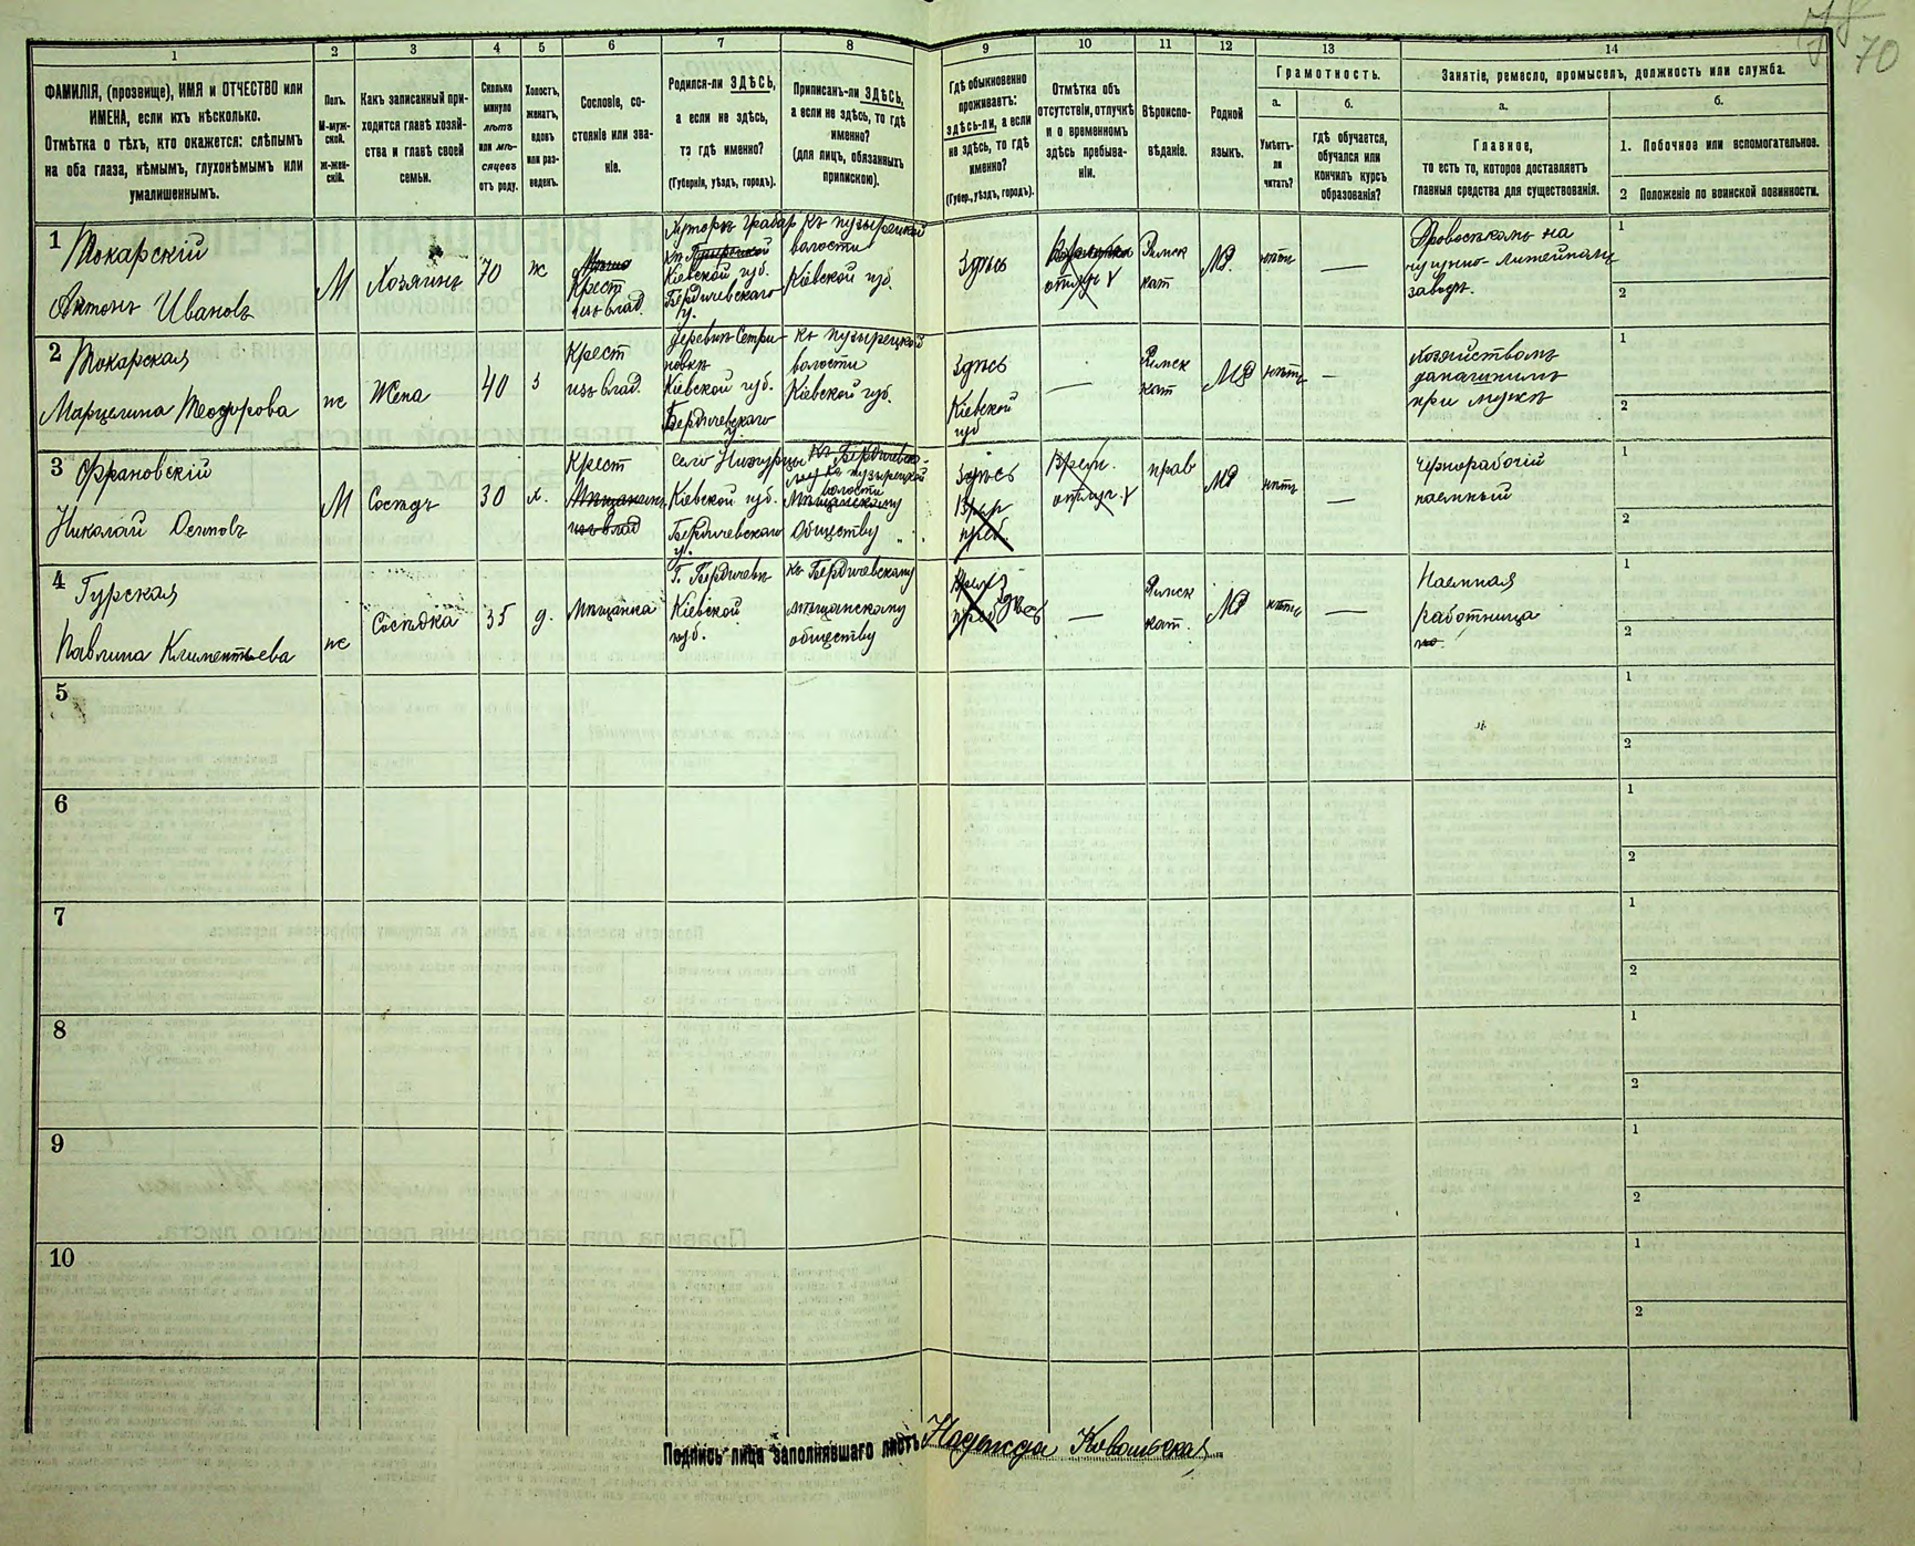 70
1
2
3
4
5
6
7
8
9
10
11
12
13
14
ФАМИЛІЯ, (прозвище), ИМЯ и ОТЧЕСТВО или
ИМЕНА, если ихъ нѣсколько.
Отмѣтка о тѣхъ, кто окажется: слѣпымъ
на оба глаза, нѣмымъ, глухонѣмымъ или
умалишеннымъ.
Полъ.
М-муж-
ской.
Ж-жен-
скій.
Какъ записанный при-
ходится главѣ хозяй-
ства и главѣ своей
семьи.
Сколько
минуло
лѣтъ
или мѣ-
сяцевъ
отъ роду.
Холостъ,
женатъ,
вдовъ
или раз-
веденъ.
Сословіе, со-
стояніе или зва-
ніе.
Родился-ли ЗДѢСЬ,
а если не здѣсь,
то гдѣ именно?
(Губернія, уѣздъ, городъ).
Приписанъ-ли ЗДѢСЬ,
а если не здѣсь, то гдѣ
именно?
(для лицъ, обязанныхъ
припискою).
Гдѣ обыкновенно
проживаетъ:
здѣсь-ли, а если
не здѣсь, то гдѣ
именно?
(Губер., уѣздъ, городъ).
Отмѣтка объ
отсутствіи, отлучкѣ
и о временномъ
здѣсь пребыва-
ніи.
Вѣроиспо-
вѣданіе.
Родной
языкъ.
Грамотность.
а.
б.
Умѣетъ-
ли
читать?
гдѣ обучается,
обучался или
кончилъ курсъ
образованія?
Занятіе, ремесло, промыселъ, должность или служба.
а.
б.
Главное,
то есть то, которое доставляетъ
главныя средства для существованія.
1. Побочное или вспомогательное.
2 Положеніе по воинской повинности.
1
Токарскій
Антонъ Ивановъ
М
Хозяинъ
70
ж
Крест
изъ влад.
Хуторъ
Кіевской губ.
Бердичевскаго
у.
къ пузырецкой
волости
Кіевской губ.
Здѣсь
Римск
кат
нѣтъ
—
Дровосѣкомъ на
чугунно-литейномъ
заводѣ.
1
2
2
Токарская
Марцелина Теодорова
ж
Жена
40
з
Крест
изъ влад.
деревнѣ
Кіевской губ.
Бердичевскаго
у.
къ пузырецкой
волости
Кіевской губ.
Здѣсь
Кіевской
губ
—
Римск
кат
нѣтъ
—
хозяйствомъ
домашнимъ
при мужѣ
1
2
3
Николай
М
Сосѣдъ
30
х.
Крест
Мѣщанинъ
изъ влад
село
Кіевской губ.
Бердичевскаго
у.
къ пузырецкой
волости
Мѣщанскому
Обществу
Здѣсь
Врем.
отлуч.
прав
нѣтъ
—
Чернорабочій
наемный
1
2
4
Гурская
Павлина Климентьева
ж
Сосѣдка
35
д.
Мѣщанка
Г. Бердичевъ
Кіевской
губ.
къ Бердичевскому
мѣщанскому
обществу
Здѣсь
—
Римск
кат.
нѣтъ
—
Наемная
работница
1
2
5
1
2
6
1
2
7
1
2
8
1
2
9
1
2
10
1
2
Подпись лица заполнявшаго листъ Надежда